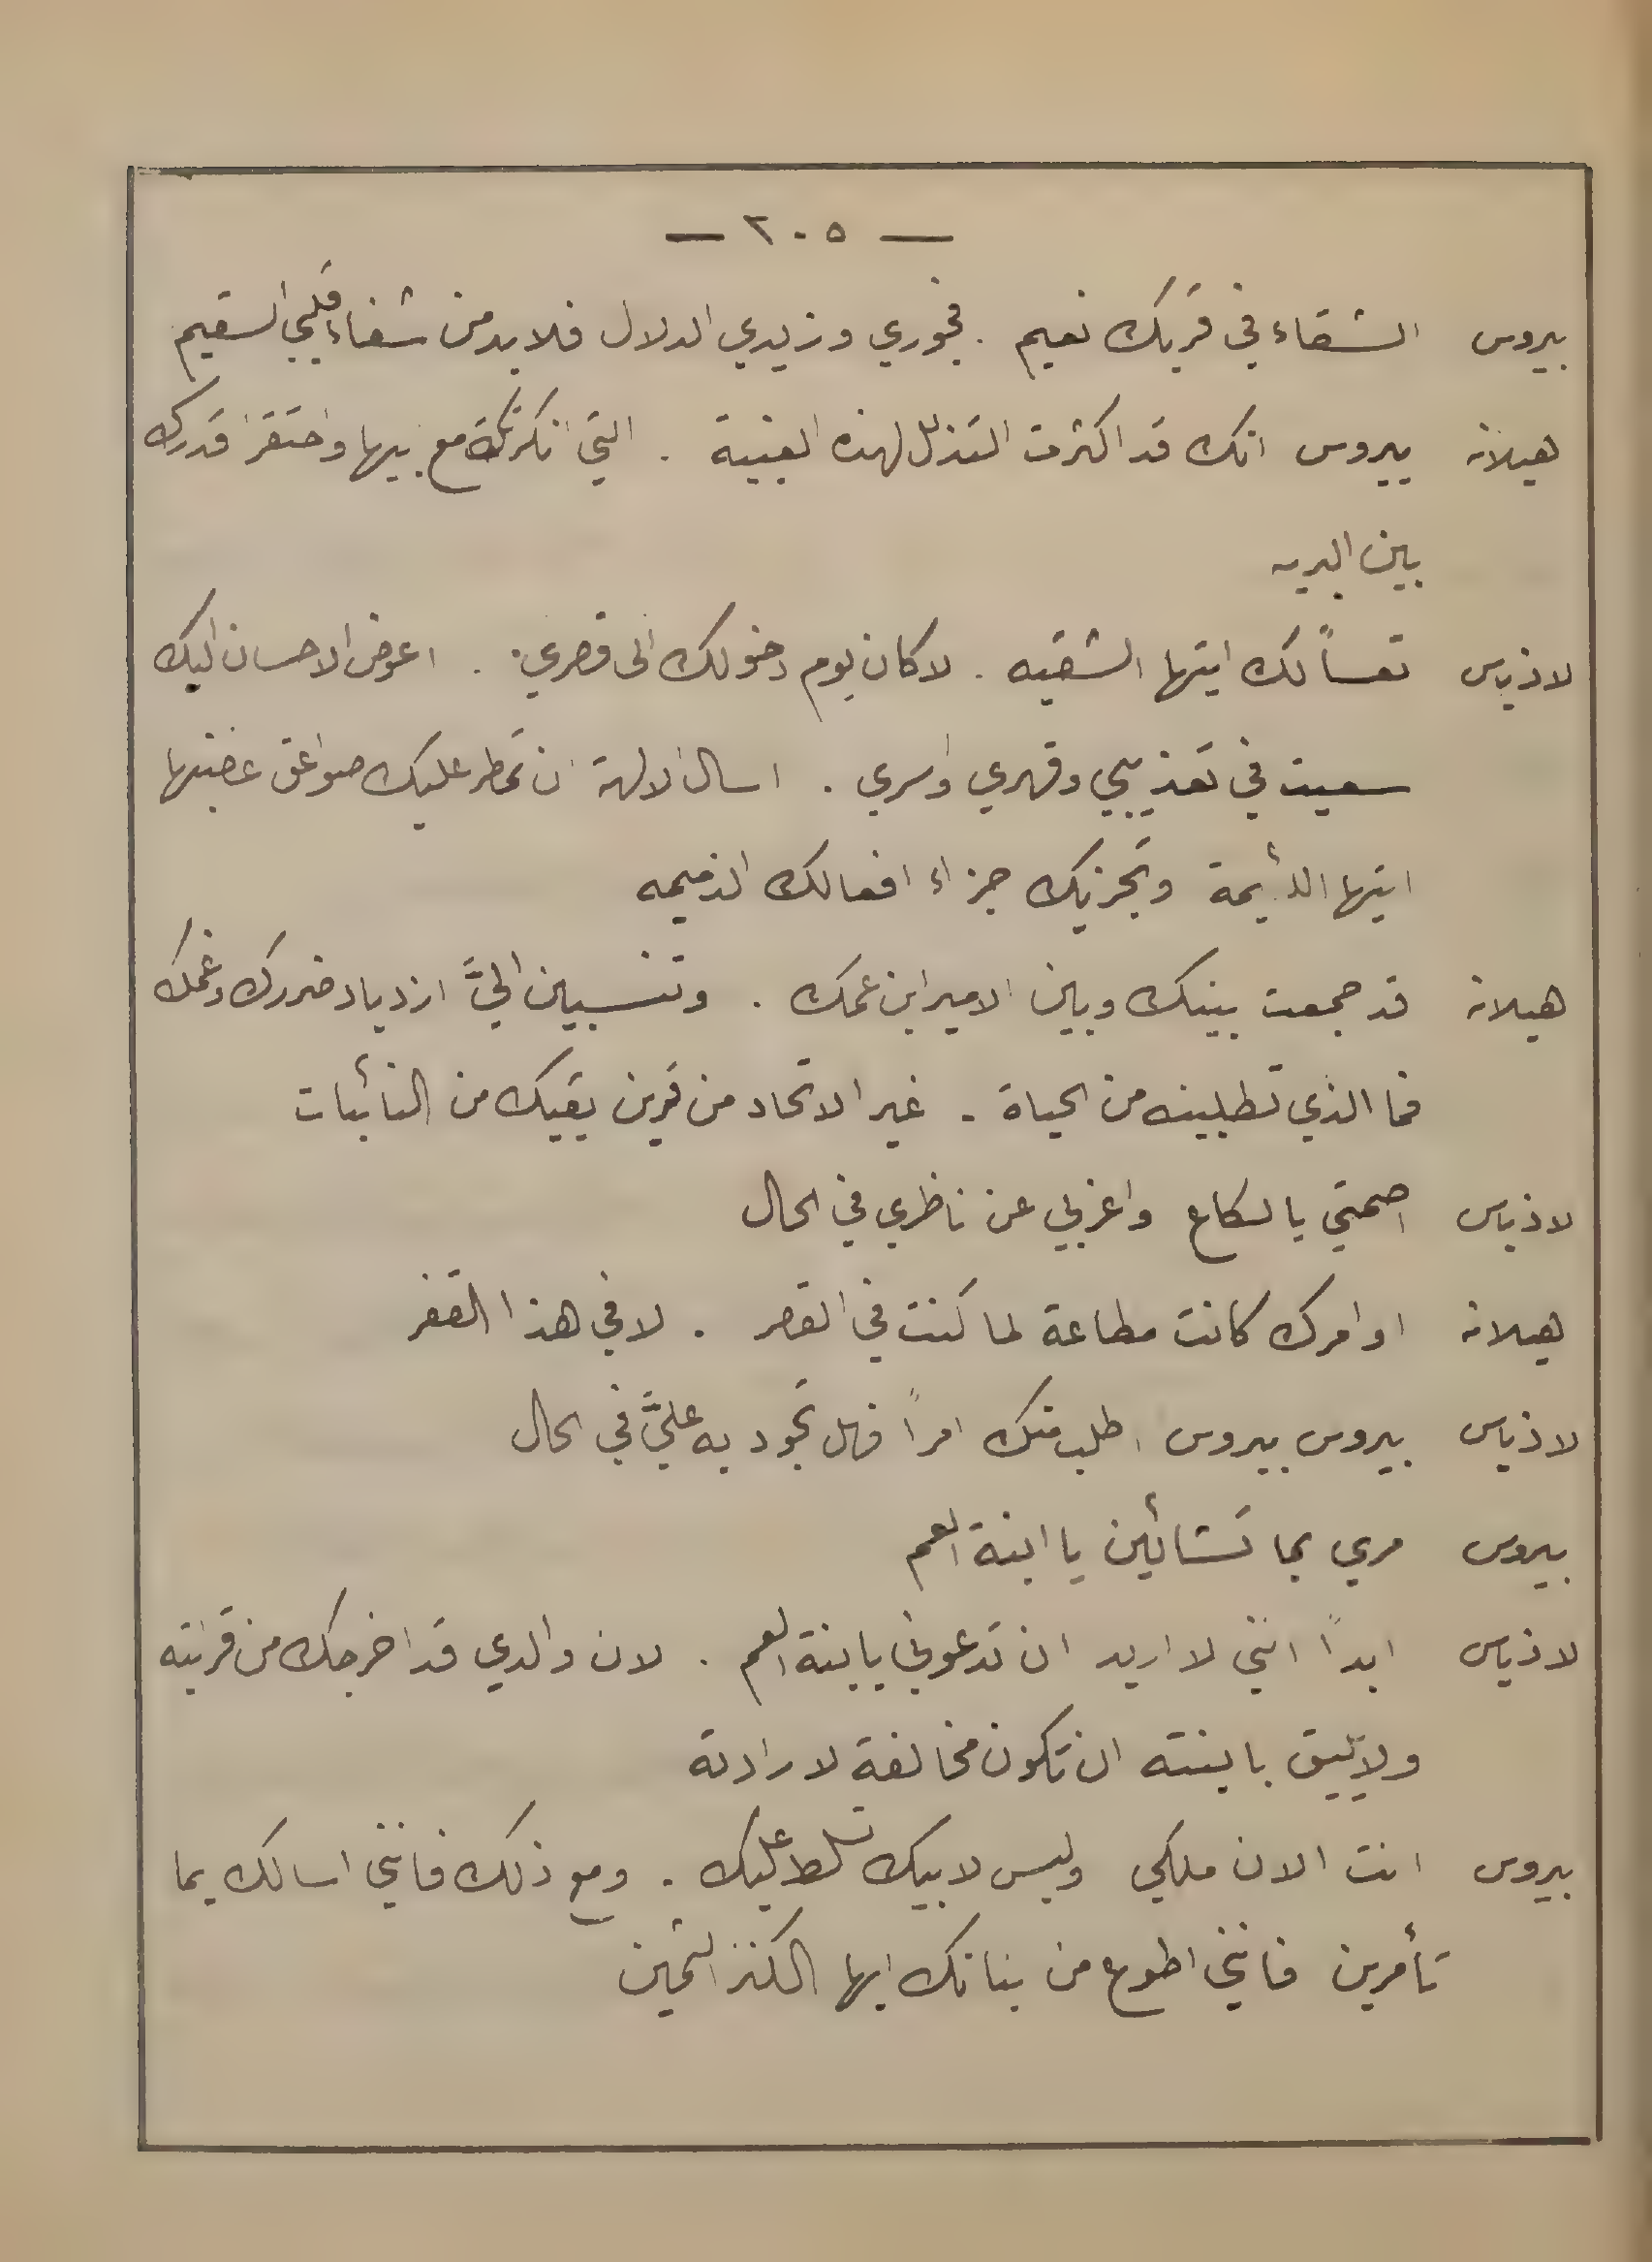 — ٢٠٥ —
بيروس الشقاء في قربك نعيم . فجوري وزيدي الدلال فلا بد من شفاء قلبي السقيم
هيلانه بيروس انك قد اكثرت التذلل لهذه الغبية . التي انكرتك مع ابيها واحتقرا قدرك
بين البريه
لاذياس تعساً لك ايتها الشقيه . لا كان يوم دخولك الى قصري . اعوض الاحسان اليك
سعيت في تعذيبي وقهري واسري . اسال الالهة ان تمطر عليك صواعق غضبها
ايتها الئيمة وتجزيك جزاء افعالك الذميمه
هيلانه قد جمعت بينك وبين الامير ابن عمك . وتنسبين اليَّ ازدياد ضررك وغمك
فما الذي تطلبينه من الحياة . غير الاتحاد من قرين يقيك من النائبات
لاذياس اصمتي يا لكاع واغربي عن ناظري في الحال
هيلانه اوامرك كانت مطاعة لما كنت في القصر . لا في هذا القفر
لاذياس بيروس بيروس اطلب منك امراً فهل تجود به عليَّ في الحال
بيروس مري بما تشائين يا ابنة العم
لاذياس ابداً انني لا اريد ان تدعوني يا بنة العم . لان والدي قد اخرجك من قرابته
ولا يليق بابنته ان تكون مخالفة لارادته
بيروس انت الان ملكي وليس لابيك تسلط عليك . ومع ذلك فانني اسالك بما
تأمرين فانني اطوع من بنانك ايها الكنز الثمين